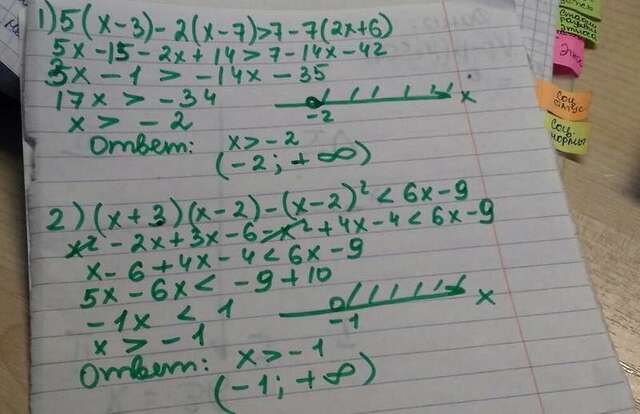 1) 5(x-3)-2(x-7)>7-7(2x+6)
5x-15-2x+14>7-14x-42
3x-1>-14x-35
17x>-34
x>-2
-2
x
Ответ: x>-2
(-2; +∞)
2) (x+3)(x-2)-(x-2)²<6x-9
x²-2x+3x-6-x²+4x-4<6x-9
x-6+4x-4<6x-9
5x-6x<-9+10
-1x<1
x>-1
-1
x
Ответ: x>-1
(-1; +∞)
соц.